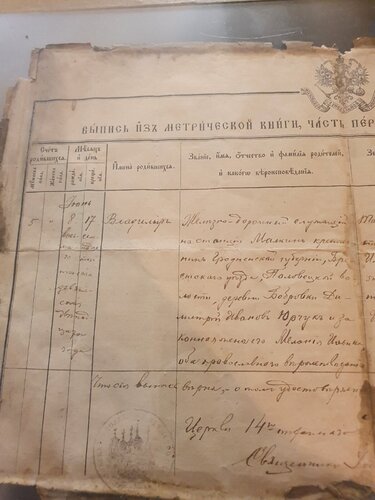 ВЫПИСЬ ИЗЪ МЕТРИЧЕСКОЙ КНИГИ, ЧАСТЬ ПЕР
Счетъ родившихся.
Мѣсяцъ и день
Имена родившихся.
Званіе, имя, отчество и фамилія родителей, и какого вѣроисповѣданія.
Мужеска пола.
Женска пола.
рожденія.
крещенія.
Іюнь
5 " 8 17
Владиміръ
Желѣзно-дорожный служащій
на станціи Малкинъ крестья
нинъ Гродненской губерніи, Бре
стскаго уѣзда, Половецкой во
лости, деревни Бобровки Ди
митрій Ивановъ Юрчукъ и за
коннаяжена его Меланія
оба православнаго вѣроисповѣданія
тысяча
года
Что сія выпись вѣрна, о томъ удостовѣряемъ
Церкви 14го
Священникъ